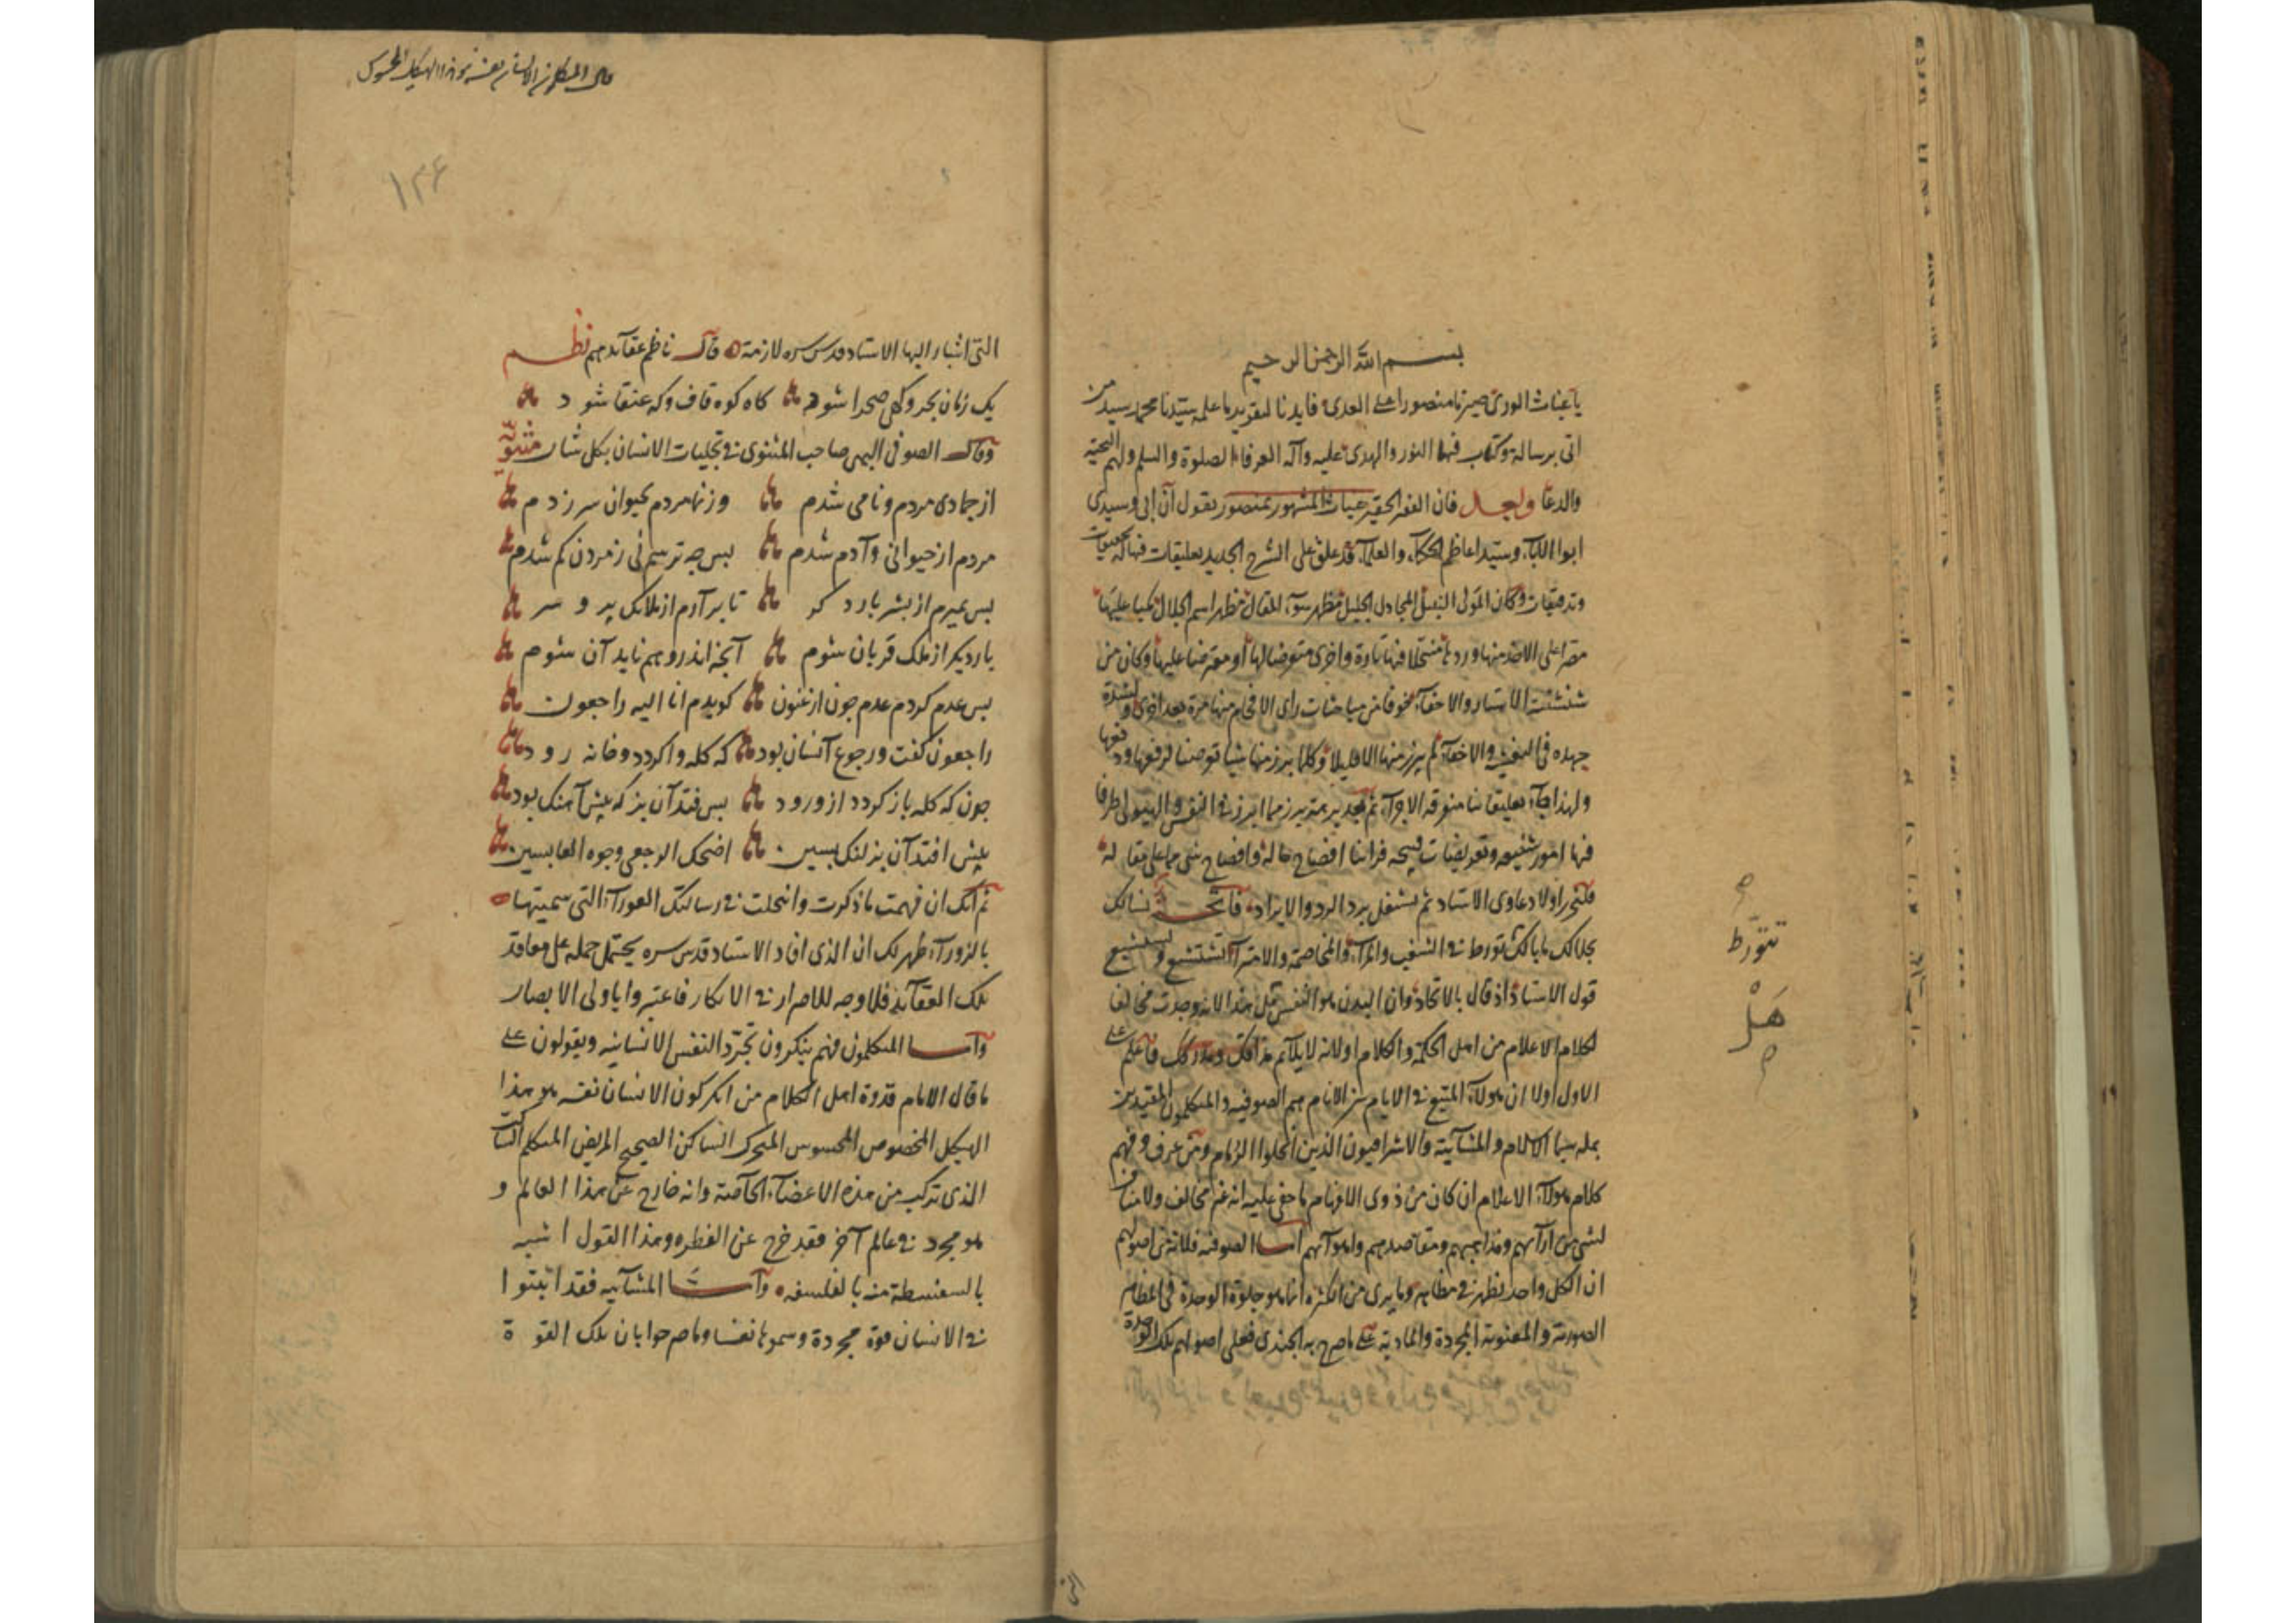 بسم الله الرحمن الرحيم
يا غياث الورى صيرنا منصورا على العدى فايدنا لتقويم ما علمه سيدنا محمد سيد من
اتى برسالة وكتاب فيها النور والهدى عليه وآله العرفاء الصلوة والسلم ولهم التحية
والدعا وبعد فان الفقير الحقير غياث المشهور بمنصور يقول ان ابى وسيدى
وسيد اعاظم الحكماء والعلماء قد علق على الشرح الجديد تعليقات فيها تحقيقات
وتدقيقات وكان المولى المجادل الجليل مظهر سوء المقال مظهر اسم الجلال مكبا عليها
مصرا على الاخذ منها وردها منتحلا فيها تارة واخرى متعرضا لها او معترضا عليها وكان من
الاستار والاخفاء خوفا من مباحثات راى الافحام منها مرة بعد اخرى ولشدة
جهده فى والاخفاء لم يبرز منها الا قليلا وكلما برز منها شيا
ولهذا جاء تعليقاتنا متفرقة الاجزاء ثم
فيها امور شنيعه وتعريضات قبيحه فراينا افضاح حاله وافضاح شئ مما على مقاله
فلنحرر اولا دعاوى الاستاد ثم نشتغل برد الرد والايراد
تتورط فى الشغب والمراء والمخاصمة والامتراء
قول الاستاذ اذ قال بالاتحاد وان البدن هو النفس قبل هذا لانه وجدت مخالفا
لكلام الاعلام من اهل الحكمة والكلام او لانه لا يلائم مذاقك ومدركك فاعلم على
الاول اولا ان هؤلاء فى الايام بين الانام هم الصوفيه والمتكلمون المقيدين
بمله سيما الاسلام والمشائية والاشراقيون الذين ومن عرف وفهم
كلام هؤلاء الاعلام ان كان من ذوى الافهام ما خفى عليه انه غير مخالف ولا مناف
لشئ من آرائهم ومذاهبهم ومقاصدهم واهوائهم اما الصوفيه فلانه من اصولهم
ان الكل واحد يظهر فى مظاهر وما يرى من الكثره انما هو جلوة الوحدة فى المظاهر
الصورية والمعنوية المجردة والمادية على ما صرح به الجندى فعلى اصولهم تلك الوحدة
تتورط
هل
التى
التى اشار اليها الاستاد قدس سره لازمة قال ناظم عقائدهم نظم
يك زمان بحر وكهى صحرا شود كاه كوه قاف وكه عنقا شود
وقال الصوفى البهى صاحب المثنوى فى تجليات الانسان بكل شان مثنوى
از جمادى مردم ونامى شدم وز نما مردم بحيوان سر زدم
مردم از حيوانى وآدم شدم بس چه ترسم كى ز مردن كم شدم
بس بميرم از بشر بار دكر تا برآرم از ملائك پر و سر
بار ديكر از ملك قربان شوم آنچه اندر وهم نايد آن شوم
بس عدم كردم عدم چون ارغنون كويدم انا اليه راجعون
راجعون كفت ورجوع آنسان بود كه كله واكردد وخانه رود
چون كه كله باز كردد از ورود بس فتد آن بز كه پيش آهنك بود
پيش افتد آن بز لنك پسين اضحك الرجعى وجوه العابسين
ثم انك ان فهمت ما ذكرت وانتحلت فى رسالتك العوراء التى سميتها
بالزوراء ظهر لك ان الذى افاد الاستاد قدس سره يحتمل حمله على معاقد
تلك العقائد فلا وجه للاصرار فى الانكار فاعتبروا يا اولى الابصار
واما المتكلمون فهم ينكرون تجرد النفس الانسانيه ويقولون على
ما قال الامام قدوة اهل الكلام من انكر كون الانسان نفسه هو هذا
الهيكل المخصوص المحسوس المتحرك الساكن الصحيح المريض المتكلم الساكت
الذى تركب من هذه الاعضاء الخاصة وانه خارج عن هذا العالم و
هو مجرد فى عالم آخر فقد خرج عن الفطره وهذا القول اشبه
بالسفسطة منه بالفلسفه واما المشائيه فقد اثبتوا
فى الانسان قوة مجردة وسموها نفسا وما صرحوا بان تلك القوة
١٣۶